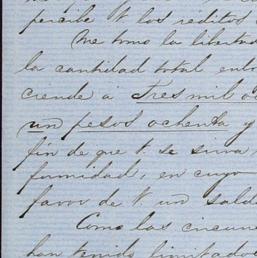 percibe V los reditos
Me tomo la libertad
la cantidad total
ciende á Tres mil
un pesos ochenta y
fin de que V. se sirva,
formidad, en cuyo
favor de V un sald
Como las circun
han tenido limitados